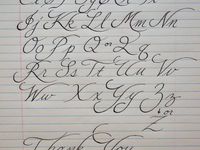 Ij Jj Kk Ll Mm Nn
Oo Pp Q or Q q
Rr Ss Tt Uu Vv
Ww Xx Yy Zz
or
Z
Thank You